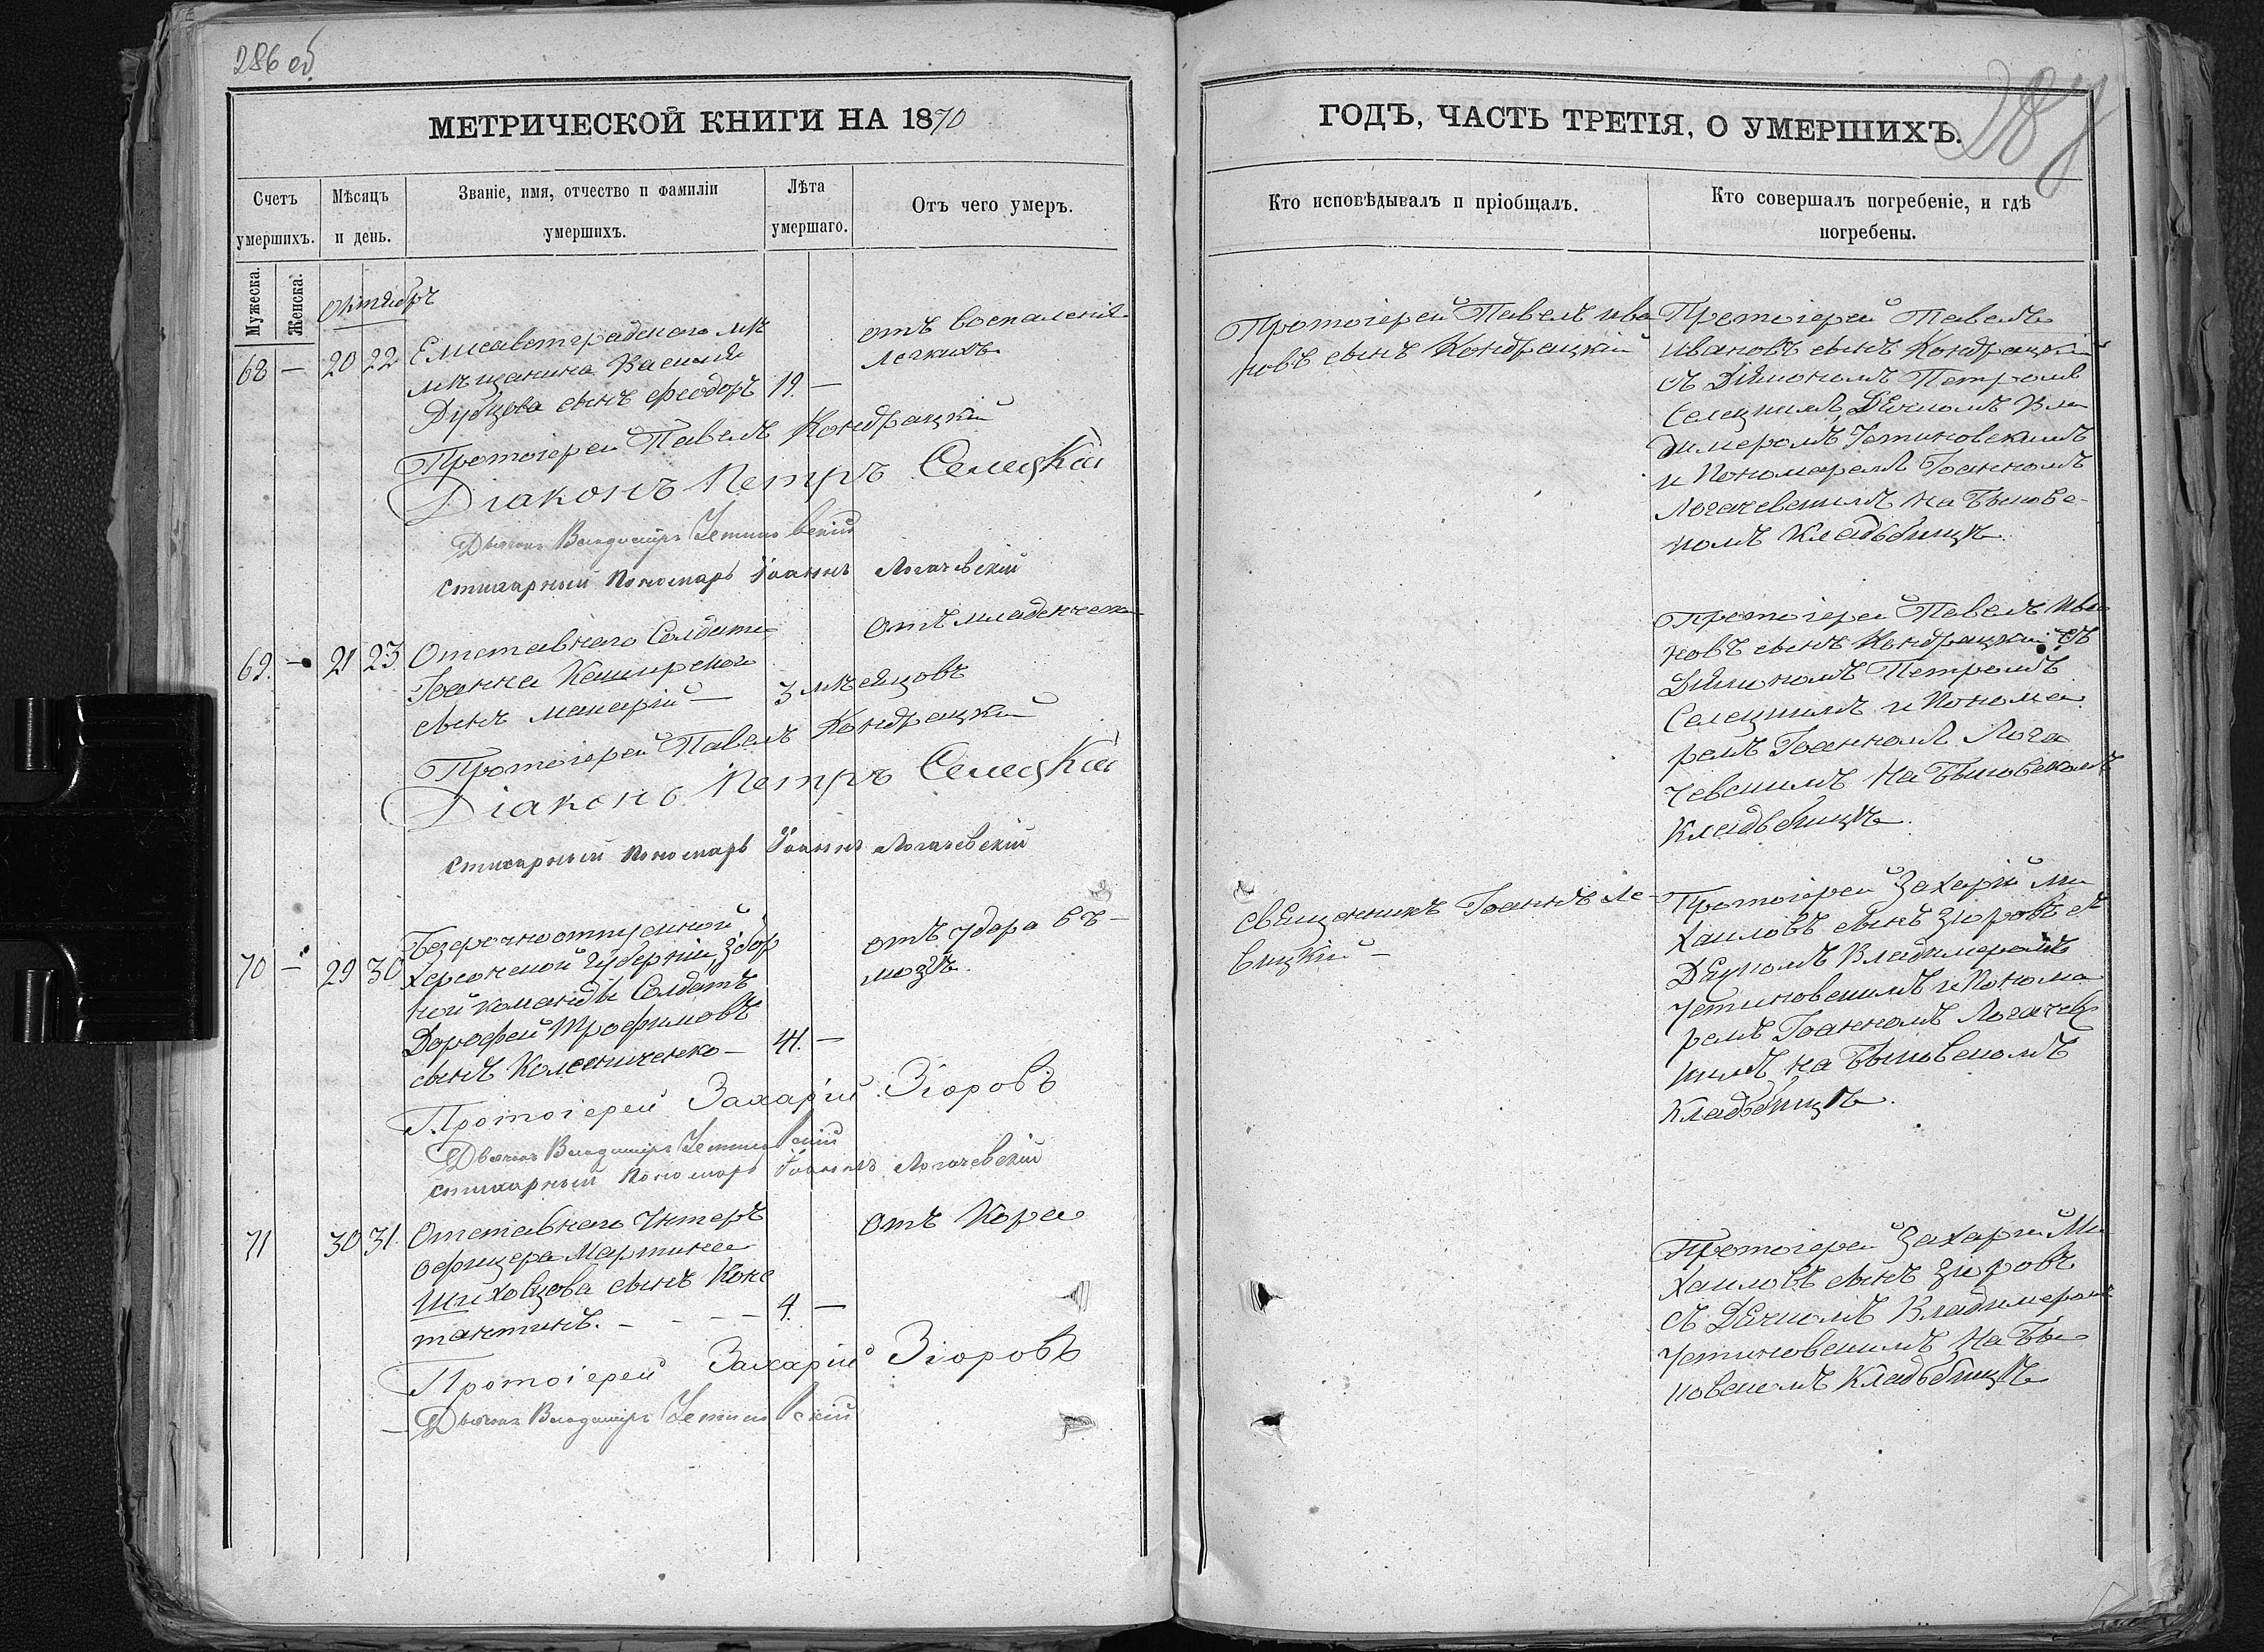 286 об
МЕТРИЧЕСКОЙ КНИГИ НА 1870
Счетъ умершихъ.
Мѣсяцъ и день.
Званіе, имя, отчество и фамиліи умершихъ.
Лѣта умершаго.
Отъ чего умеръ.
Мужеска.
Женска.
Октябрь
68 — 20 22
Елисаветградскаго
мѣщанина Василія
Дубцова сынъ Феодоръ 19. —
отъ воспаленія
легкихъ
Протоіерей Павелъ Кондрацкій
Діаконъ Петръ Селецкій
Дьячокъ Владиміръ Четыновскій
Стихарный Пономарь Іоаннъ Логачевскій
69. — 21 23
Отставнаго Солдата
Іоанна Каширского
сынъ Макарій — 3 мѣсяцовъ
отъ младенческ
Протоіерей Павелъ Кондрацкій
Діаконъ Петръ Селецкій
Стихарный Пономарь Іоаннъ Логачевскій
70 — 29 30
Безсрочноотпускной
Херсонской Губерніи,
ной команды Солдатъ
Дорофей Трофимовъ
сынъ Колесниченко — 41. —
отъ удара въ
мозгъ.
Протоіерей Захарій Згоровъ
Дьячокъ Владиміръ Четыновскій
Стихарный Пономарь Іоаннъ Логачевскій
71 30 31.
Отставнаго Унтеръ
офицера Мартина
Шиховцова сынъ Конс
тантинъ. - - - - 4. —
Отъ Кора
Протоіерей Захарій Згоровъ
Дьячокъ Владиміръ Четыновскій
287
ГОДЪ, ЧАСТЬ ТРЕТІЯ, О УМЕРШИХЪ.
Кто исповѣдывалъ и пріобщалъ.
Кто совершалъ погребеніе, и гдѣ погребены.
Протоіерей Павелъ Ива
новъ сынъ Кондрацкій
Протоіерей Павелъ
Ивановъ сынъ Кондрацкій
съ Діякономъ Петромъ
Селецкимъ Дячкомъ Вла
димеромъ Четыновскимъ
и Пономаремъ Іоанномъ
Логачевскимъ на Быковс
комъ Кладбищѣ.
Протоіерей Павелъ Ива
новъ сынъ Кондрацкій съ
Діякономъ Петромъ
Селецкимъ и Понома
ремъ Іоанномъ Лога
чевскимъ на Быковскомъ
Кладбищѣ.
Священникъ Іоаннъ Ле-
вицкій —
Протоіерей Захарій Ми
хаиловъ сынъ Згоровъ съ
Дячкомъ Владимеромъ
Четыновскимъ и Понома
ремъ Іоанномъ Логачевс
кимъ на Быковскомъ
Кладбищѣ.
Протоіерей Захарій Ми
хаиловъ сынъ Згоровъ
съ Дячкомъ Владимеромъ
Четыновскимъ на Бы
ковскомъ Кладбищѣ